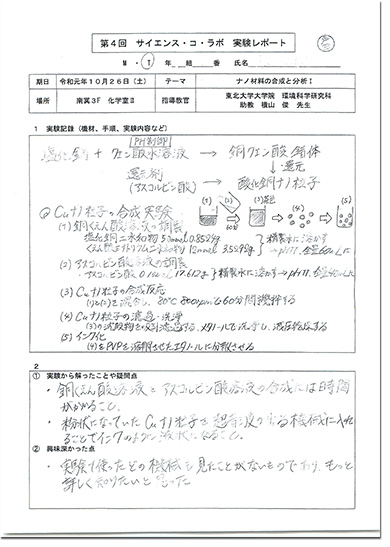 第４回 サイエンス・コ・ラボ 実験レポート
M・T 年 組 番 氏名
期日 令和元年１０月２６日（土） テーマ ナノ材料の合成と分析Ｉ
場所 南翼3F 化学室Ⅱ 指導教官 東北大学大学院 環境科学研究科
助教 横山 俊 先生
1 実験記録（機材、手順、実験内容など）
PH制御
塩化銅 + クエン酸水溶液 → 銅クエン酸錯体
還元剤 ↓還元
(アスコルビン酸) → 酸化銅ナノ粒子
Cuナノ粒子の合成実験
(1) (2) (3) (4) (5)
(1) 銅くえん酸溶液の調製
塩化銅二水和物 5mmol
(2) アスコルビン酸溶液の調製
アスコルビン酸 17.612g 精製水に溶かす→pH11
(3) Cuナノ粒子の合成反応
(1)と(2)を混合し、80℃ 800rpmで60分間攪拌する
(4) Cuナノ粒子の濾過・洗浄
(3)の沈殿物を吸引濾過する、エタノールで洗浄し、減圧乾燥する
(5) インク化
(4)をPVPを溶解させたエタノールに分散させる
2
① 実験から解ったことや疑問点
・銅くえん酸溶液とアスコルビン酸溶液の合成には時間
がかかること。
・粉状になっていたCuナノ粒子を超音波の出る機械に入れ
ることでインクのような液状になること。
② 興味深かった点
・実験で使ったどの機械も見たことがないものであり、もっと
詳しく知りたいと思った